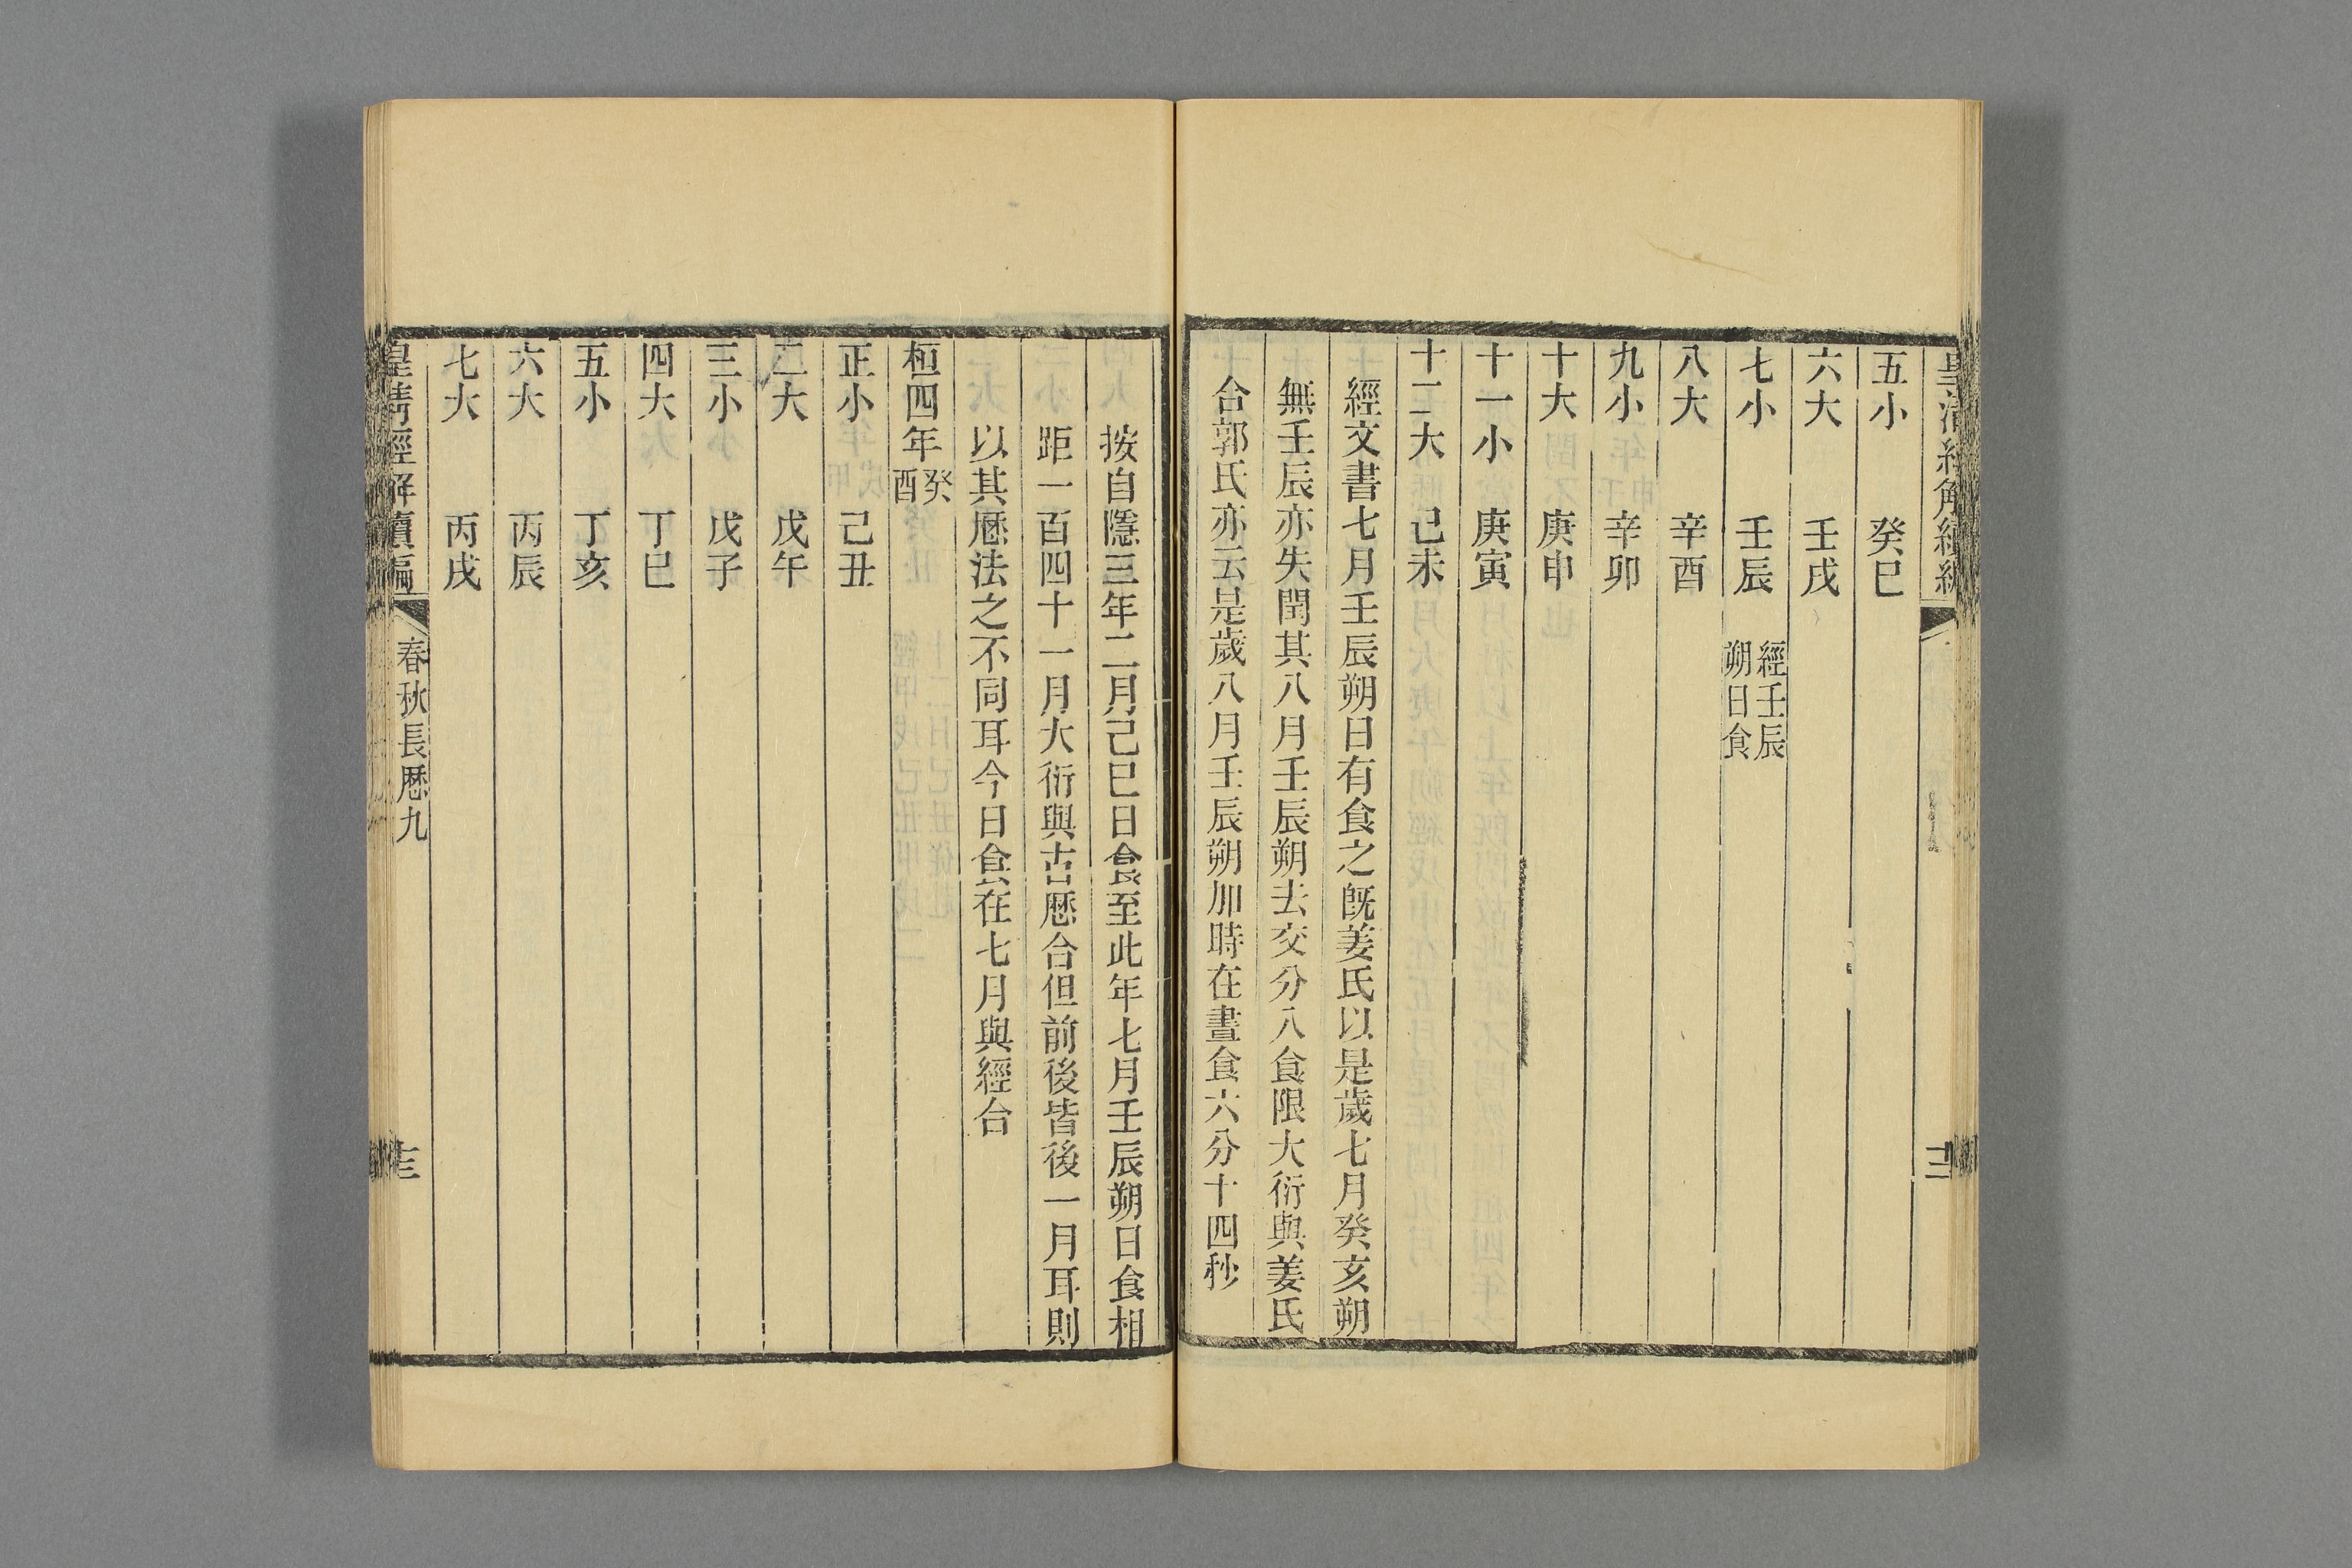 皇清經解續編
五小 癸巳
六大 壬戌
七小 壬辰 經壬辰朔日食
八大 辛酉
九小 辛卯
十大 庚申
十一小 庚寅
十二大 己未
經文書七月壬辰朔日有食之旣姜氏以是歲七月癸亥朔
無壬辰亦失閏其八月壬辰朔去交分入食限大衍與姜氏
合郭氏亦云是歲八月壬辰朔加時在晝食六分十四秒
按自隱三年二月己巳日食至此年七月壬辰朔日食相
距一百四十一月大衍與古厯合但前後皆後一月耳則
以其厯法之不同耳今日食在七月與經合
桓四年癸酉
正小 己丑
二大 戊午
三小 戊子
四大 丁巳
五小 丁亥
六大 丙辰
七大 丙戌
皇清經解續編 春秋長厯九